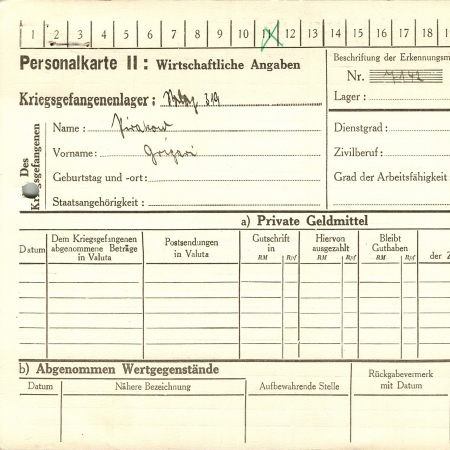 1 2 3 4 5 6 7 8 9 10 11 12 13 14 15 16 17 18 1
Personalkarte II: Wirtschaftliche Angaben
Beschriftung der Erkennungsm
Nr.
Kriegsgefangenenlager:
Lager:
Des Kriegsgefangenen
Name:
Dienstgrad:
Vorname: Grigori
Zivilberuf:
Geburtstag und -ort:
Grad der Arbeitsfähigkeit
Staatsangehörigkeit:
a) Private Geldmittel
Datum
Dem Kriegsgefangenen abgenommene Beträge in Valuta
Postsendungen in Valuta
Gutschrift in
RM Rpf
Hiervon ausgezahlt
RM Rpf
Bleibt Guthaben
RM Rpf
der Z
b) Abgenommen Wertgegenstände
Datum
Nähere Bezeichnung
Aufbewahrende Stelle
Rückgabevermerk mit Datum